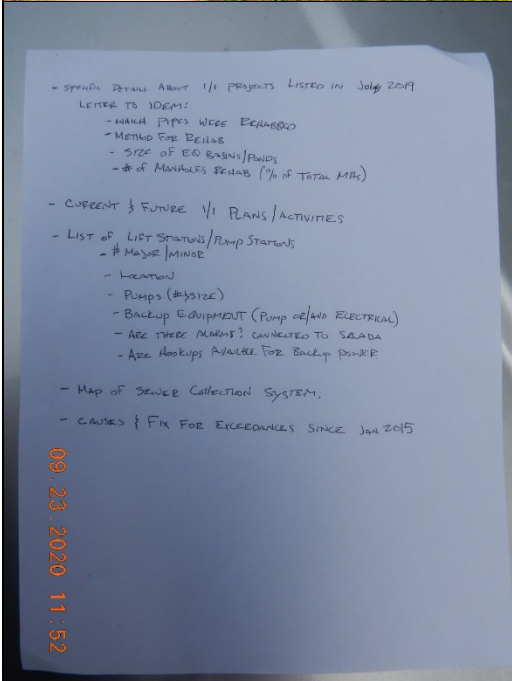 - SPECIFIC DETAILS ABOUT I/I PROJECTS LISTED IN July 2019
LETTER TO IDEM:
- WHICH PIPES WERE REHABBED
- METHOD FOR REHAB
- SIZE OF EQ BASINS/PONDS
- # of MANHOLES REHAB (% of TOTAL MHs)
- CURRENT & FUTURE I/I PLANS/ACTIVITIES
- LIST OF LIFT STATIONS/PUMP STATIONS
- # MAJOR/MINOR
- LOCATION
- PUMPS (# & SIZE)
- BACKUP EQUIPMENT (PUMP OR/AND ELECTRICAL)
- ARE THERE ALARMS? CONNECTED TO SCADA
- ARE HOOKUPS AVAILABLE FOR BACKUP POWER
- MAP OF SEWER COLLECTION SYSTEM.
- CAUSES & FIX FOR EXCEEDANCES SINCE JAN 2015
09.23.2020 11:52